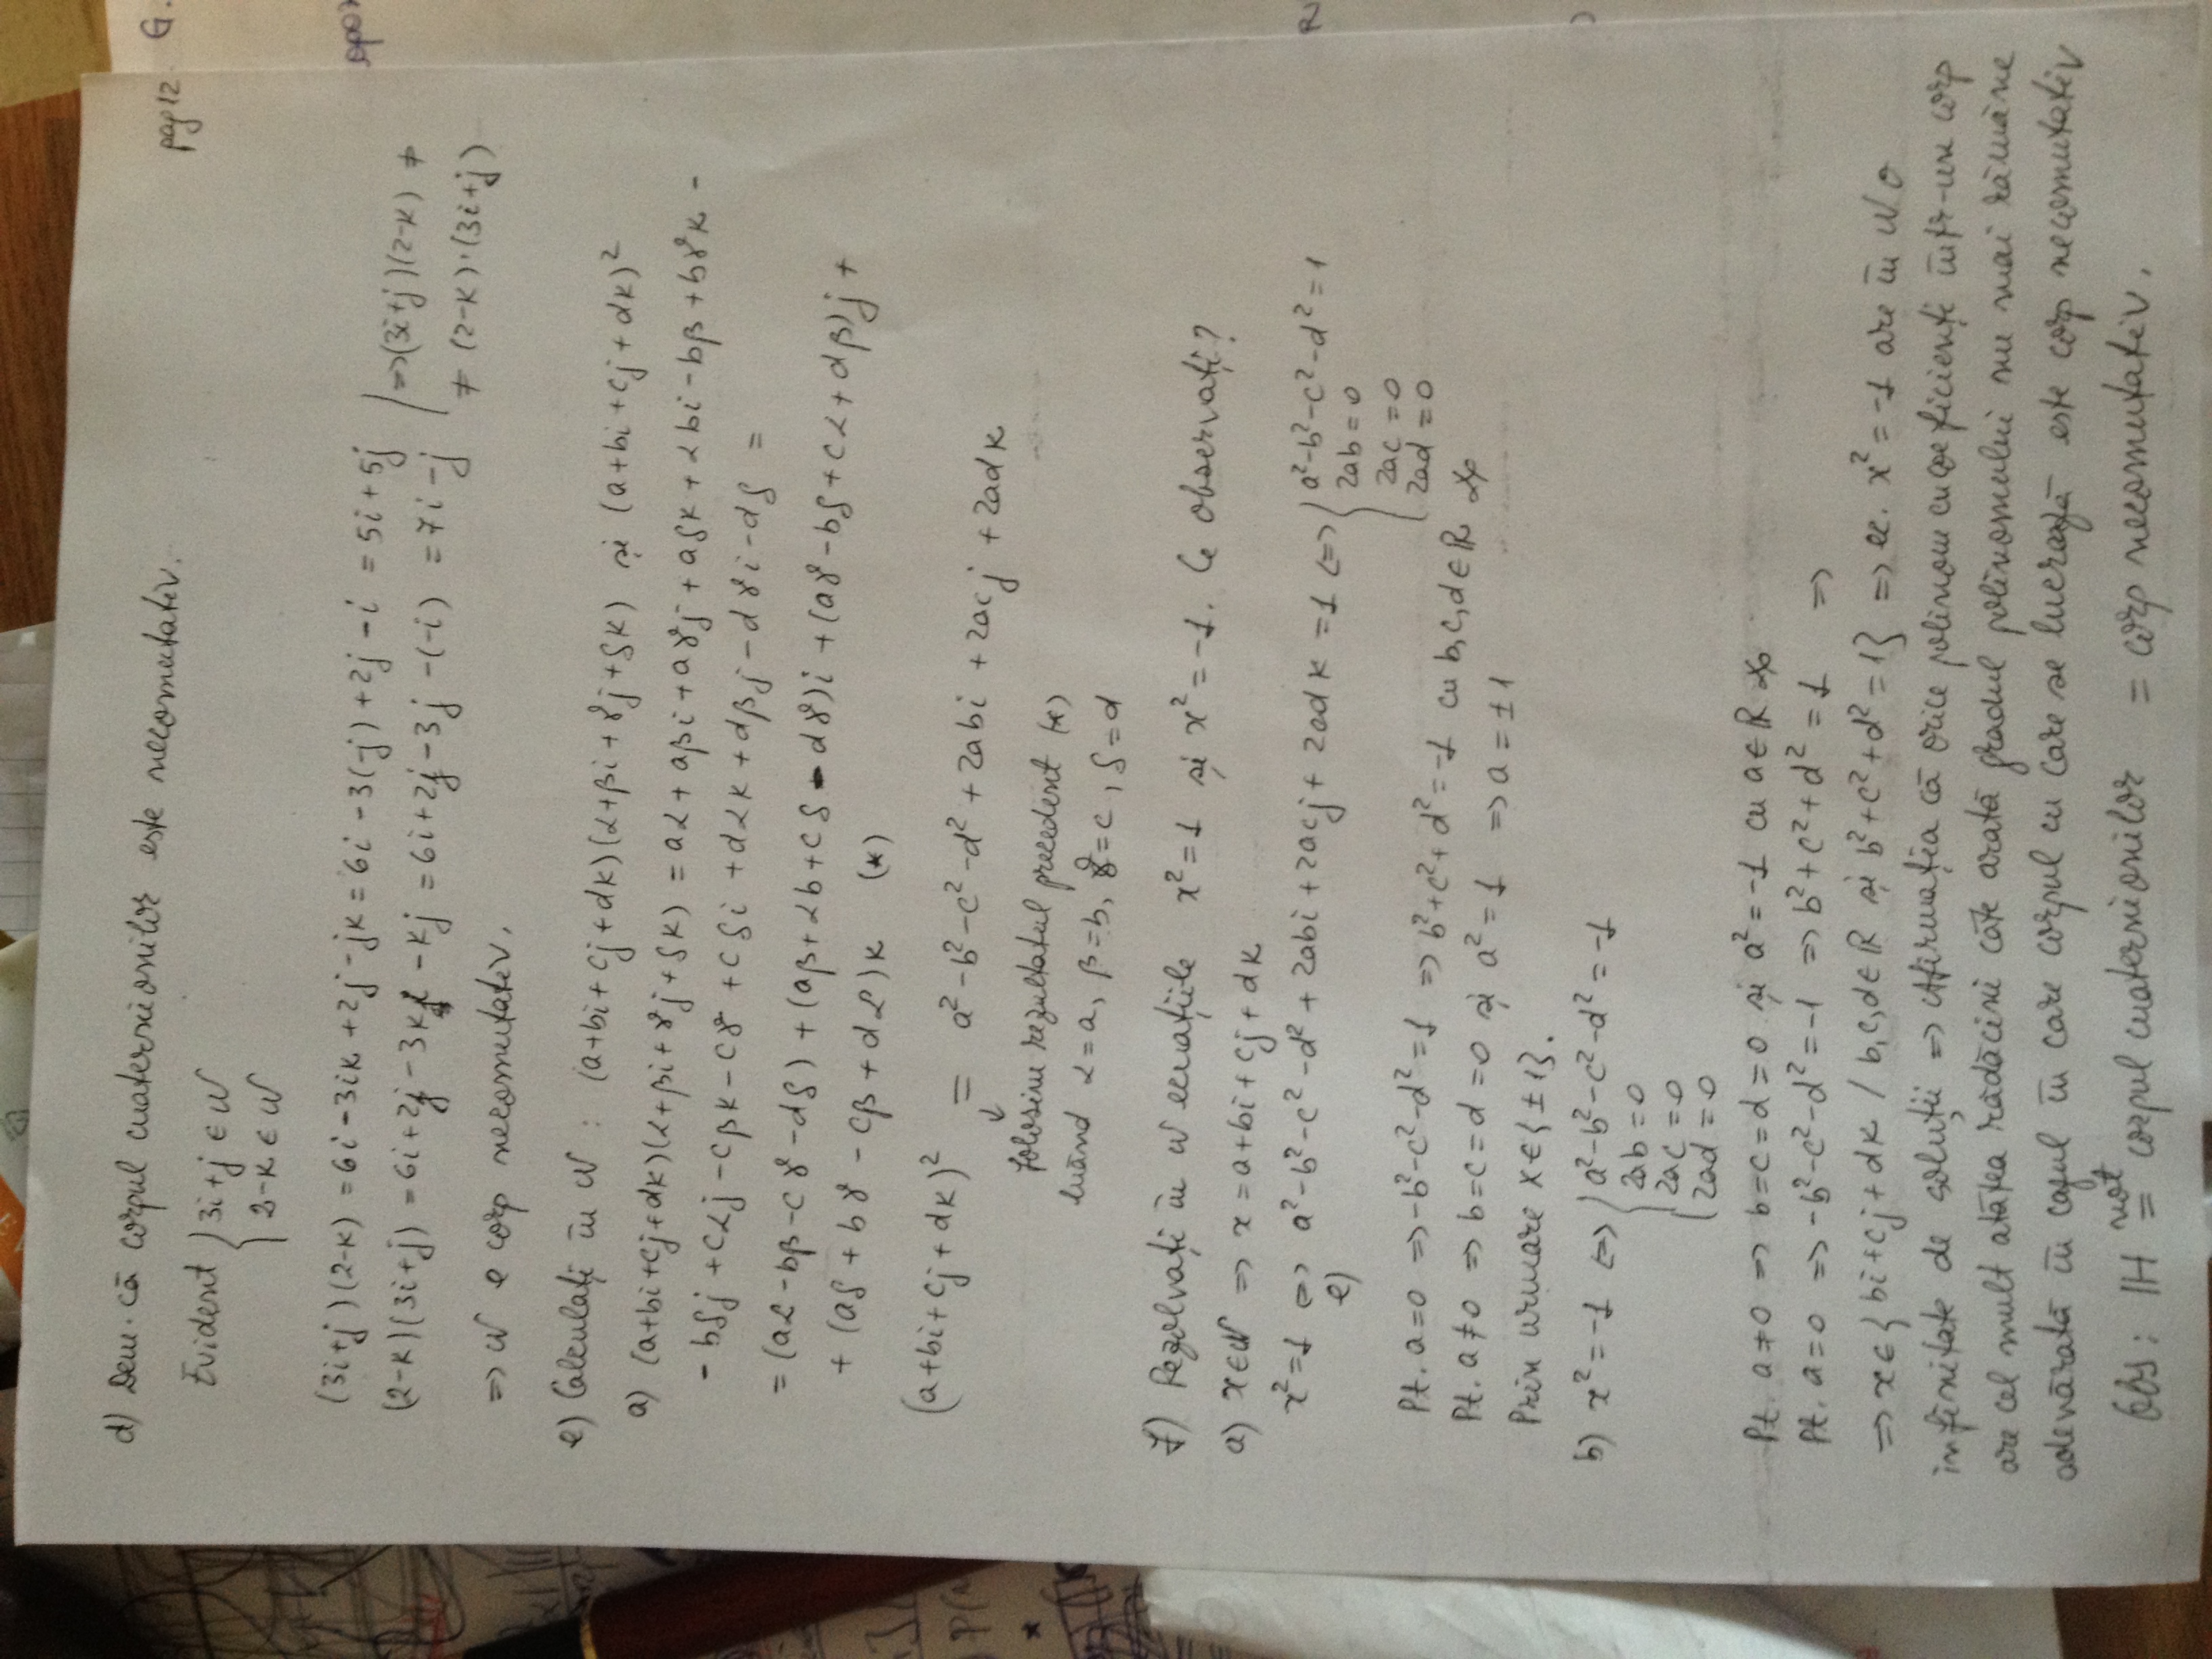 d) Dem. că corpul cuaternionilor este necomutativ.
pag 12
G.
Evident { 3i+j ∈ W
2-k ∈ W
(3i+j)(2-k) = 6i-3ik+2j-jk = 6i-3(-j)+2j-i = 5i+5j | ⇒(3i+j)(2-k) ≠
(2-k)(3i+j) = 6i+2j-3ki-kj = 6i+2j-3j-(-i) = 7i-j | ≠ (2-k)·(3i+j)
⇒ W e corp necomutativ.
e) Calculați în W : (a+bi+cj+dk)(α+βi+γj+δk) și (a+bi+cj+dk)²
a) (a+bi+cj+dk)(α+βi+γj+δk) = aα+aβi+aγj+aδk+αbi-bβ+bγk-
-bδj+cαj-cβk-cγ+cδi+dαk+dβj-dγi-dδ =
= (aα-bβ-cγ-dδ)+(aβ+αb+cδ-dγ)i+(aγ-bδ+cα+dβ)j+
+(aδ+bγ-cβ+dα)k (*)
(a+bi+cj+dk)² = a²-b²-c²-d²+2abi+2acj+2adk
↓
folosim rezultatul precedent (*)
luând α=a, β=b, γ=c, δ=d
f) Rezolvați în W ecuațiile x²=1 și x²=-1. Ce observați?
a) x∈W ⇒ x=a+bi+cj+dk
x²=1 ⇔ a²-b²-c²-d²+2abi+2acj+2adk=1 ⇔ { a²-b²-c²-d²=1
e)
2ab=0
2ac=0
2ad=0
Pt. a=0 ⇒ -b²-c²-d²=1 ⇒ b²+c²+d²=-1 cu b,c,d∈ℝ ※
Pt. a≠0 ⇒ b=c=d=0 și a²=1 ⇒ a=±1
Prin urmare x∈{±1}.
b) x²=-1 ⇔ { a²-b²-c²-d²=-1
2ab=0
2ac=0
2ad=0
Pt. a≠0 ⇒ b=c=d=0 și a²=-1 cu a∈ℝ ※
Pt. a=0 ⇒ -b²-c²-d²=-1 ⇒ b²+c²+d²=1 ⇒
⇒ x∈{bi+cj+dk / b,c,d∈ℝ și b²+c²+d²=1} ⇒ ec. x²=-1 are în W o
infinitate de soluții ⇒ Afirmația că orice polinom cu coeficienți într-un corp
are cel mult atâtea rădăcini câte arată gradul polinomului nu mai rămâne
adevărată în cazul în care corpul cu care se lucrează este corp necomutativ
Obs: ℍ not= corpul cuaternionilor = corp necomutativ.